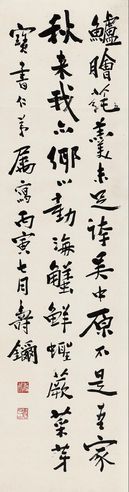 鱸膾蓴羹未足誇吴中原不是吾家
秋来我亦鄉心動海蟹鮮蟶蕨菜芽
寶書仁弟属寫丙寅七月壽鑈